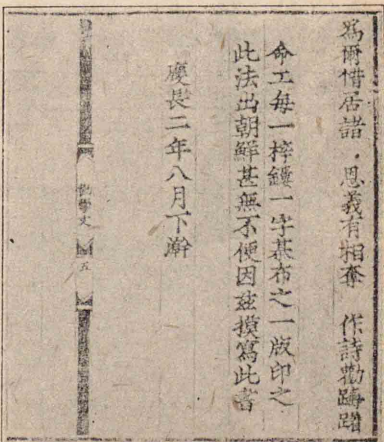 為爾惜居諸 恩義有相奪 作詩勸躊躇
命工每一梓鏤一字棊布之一版印之
此法出朝鮮甚無不便因玆摸寫此書
慶長二年八月下澣
勸學文 五